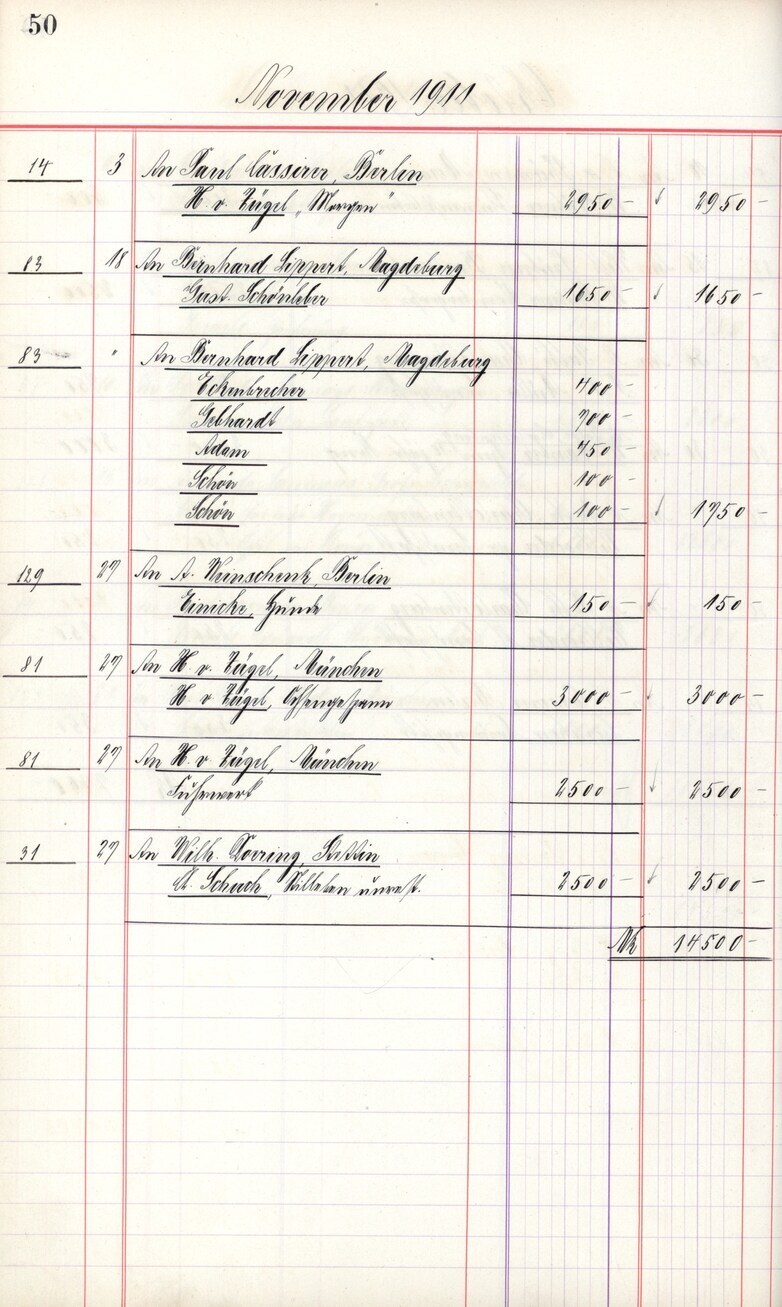 50
November 1911
14 3 An Paul Cassirer, Berlin
H. v. Zügel „Morgen“ 2950 – 2950 –
83 18 An Bernhard Lippert, Magdeburg
Gust. Schönleber 1650 – 1650 –
83 " An Bernhard Lippert, Magdeburg
Eckenbrecher 400 –
Gebhardt 700 –
Adam 450 –
Schön 100 –
Schön 100 – 1750 –
129 27 An A. Weinschenk, Berlin
Einicke, Hunde 150 – 150 –
81 27 An H. v. Zügel, München
H. v. Zügel, Ochsengespann 3000 – 3000 –
81 27 An H. v. Zügel, München
Fuhrwerk 2500 – 2500 –
31 27 An Wilh. Doering, Stettin
A. Schuch, Stilleben 2500 – 2500 –
Mk 14500 –